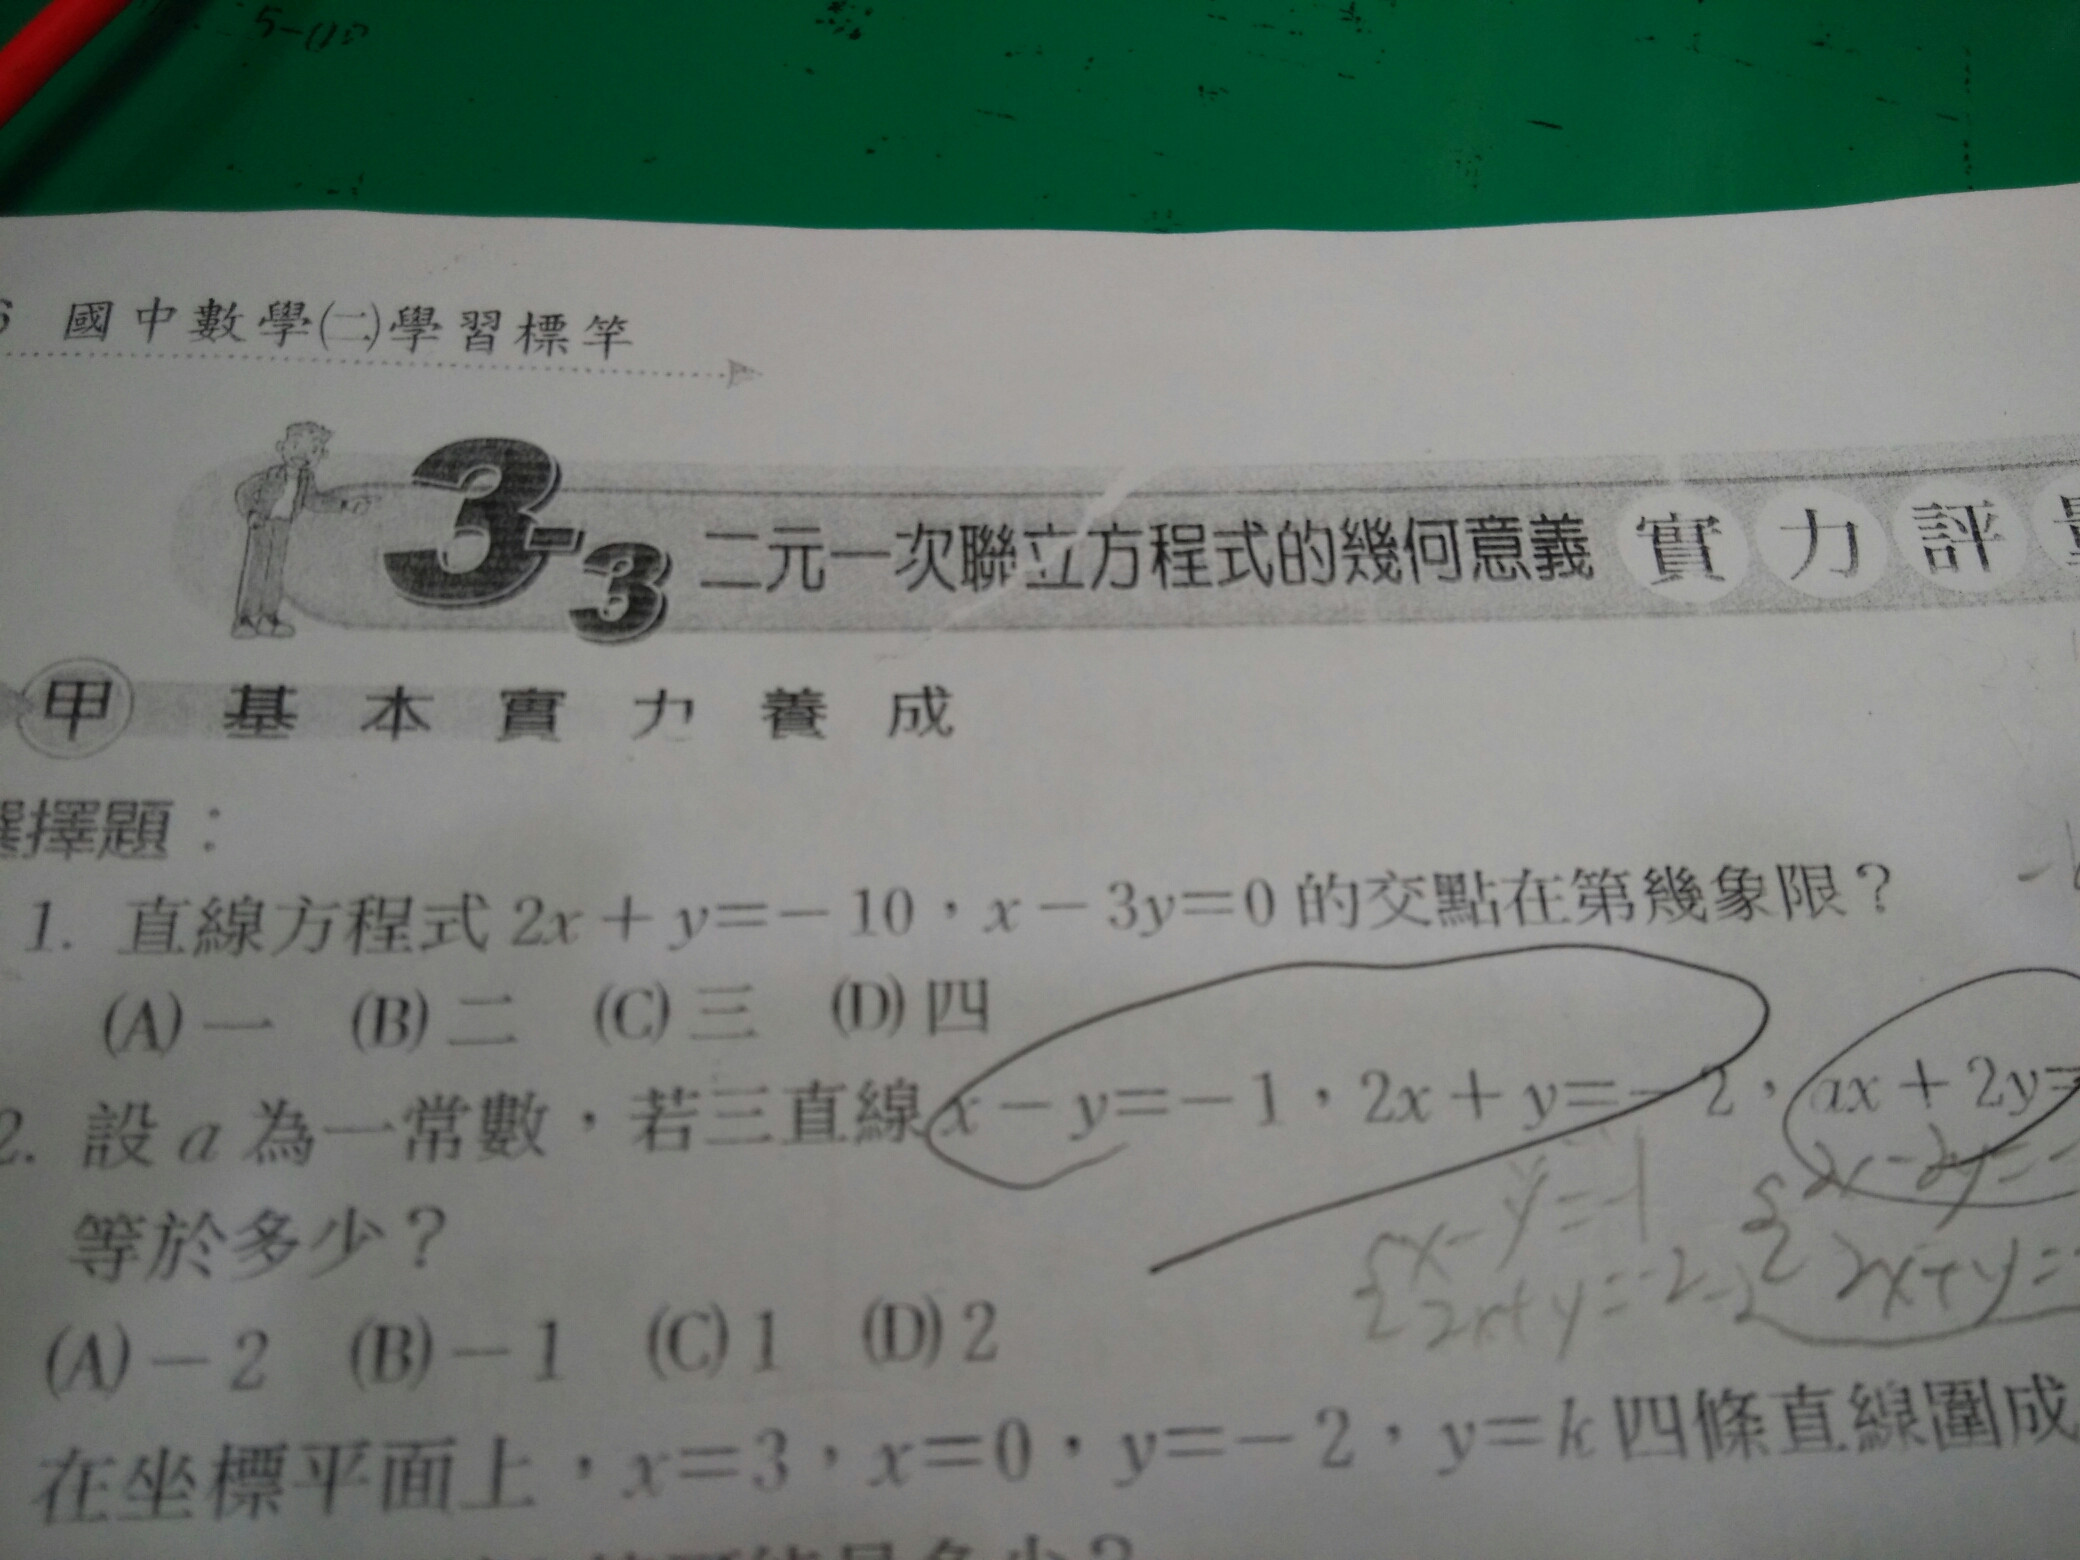 5-00
6 國中數學(二)學習標竿
3-3 二元一次聯立方程式的幾何意義 實力評量
甲 基本實力養成
選擇題：
1. 直線方程式 2x＋y＝－10，x－3y＝0 的交點在第幾象限？
(A) 一 (B) 二 (C) 三 (D) 四
2. 設 a 為一常數，若三直線 x－y＝－1，2x＋y＝－2，ax＋2y＝
等於多少？
(A)－2 (B)－1 (C) 1 (D) 2
x-y=-1
2x+y=-2
2x+y=
在坐標平面上，x＝3，x＝0，y＝－2，y＝k 四條直線圍成
多少？